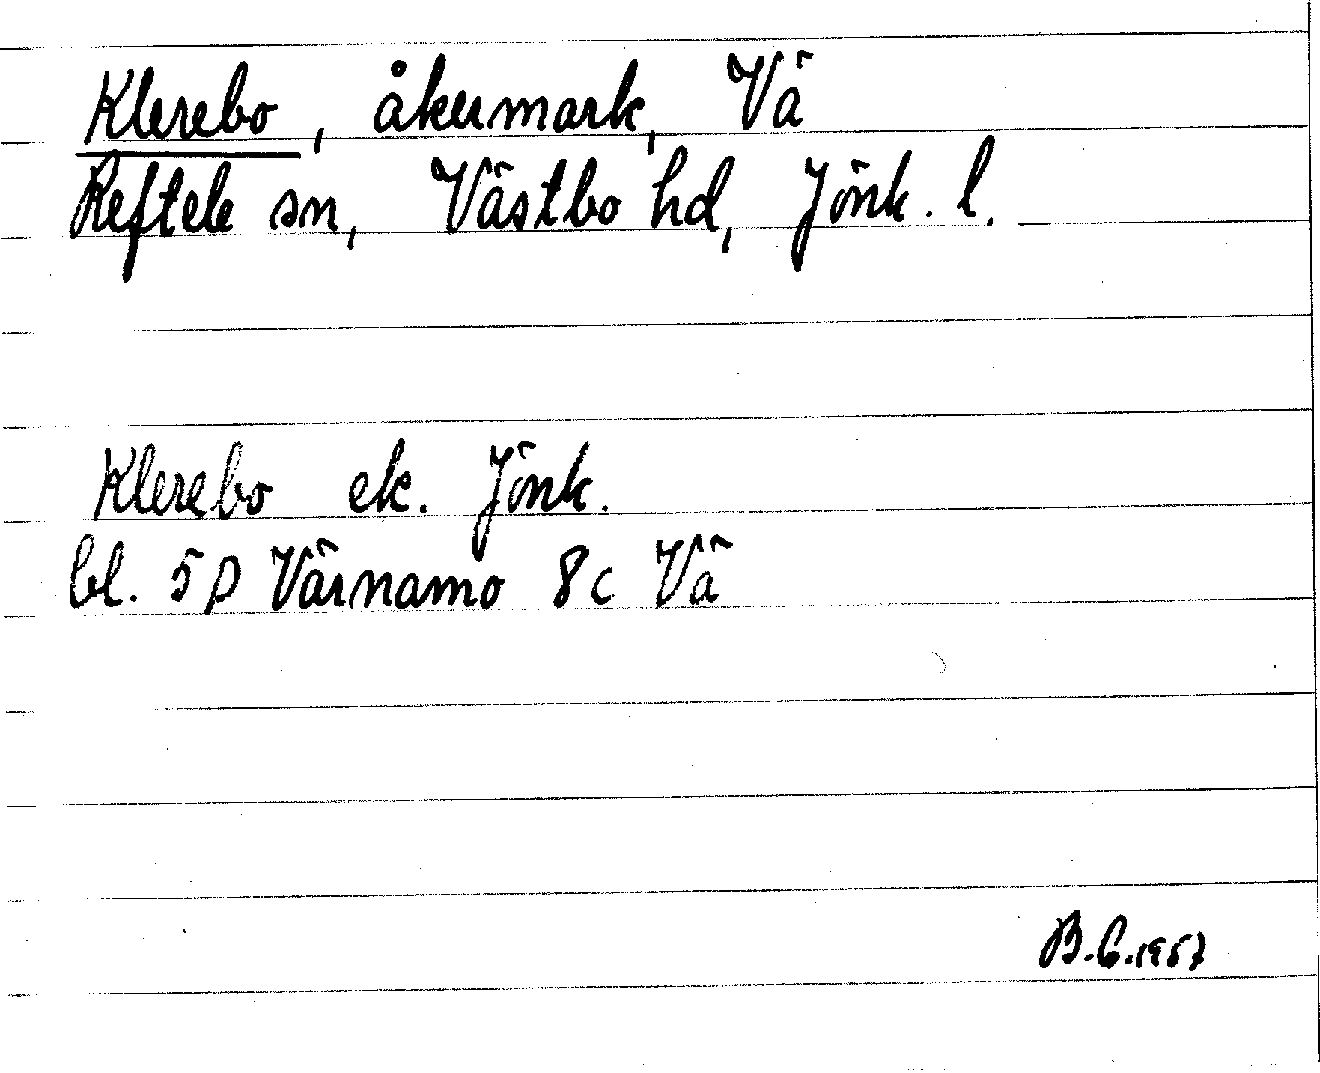 Klerebo, åkermark, Vä
Reftele sn, Västbo hd, Jönk. l.
Klerebo ek. Jönk.
bl. 5 D Värnamo 8 c Vä
B.G. 1957